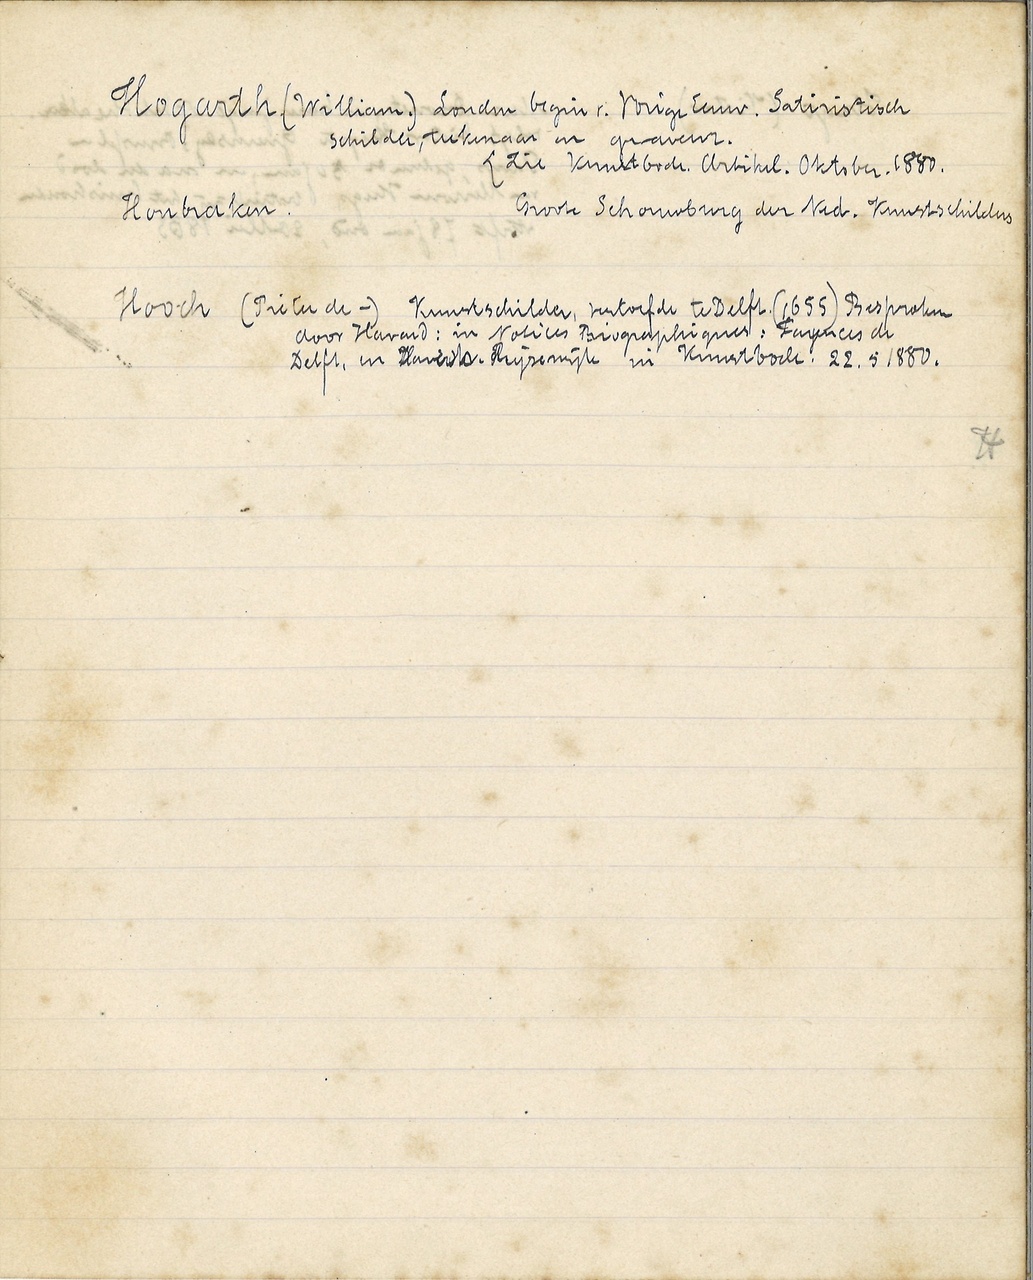 Hogarth (William.) Londen begin v. Vorige Eeuw. Satiristisch
schilder, teekenaar en graveur.
(Zie Kunstbode. Artikel. Oktober. 1880.
Houbraken. Groote Schouwburg der Ned. Kunstschilders
Hooch (Pieter de -) Kunstschilder, vertoefde te Delft. (1655) Besproken
door Havard: in Notices Biographiques: Fayences de
Delft, en Rijsewijk in Kunstbode. 22. 5 1880.
H